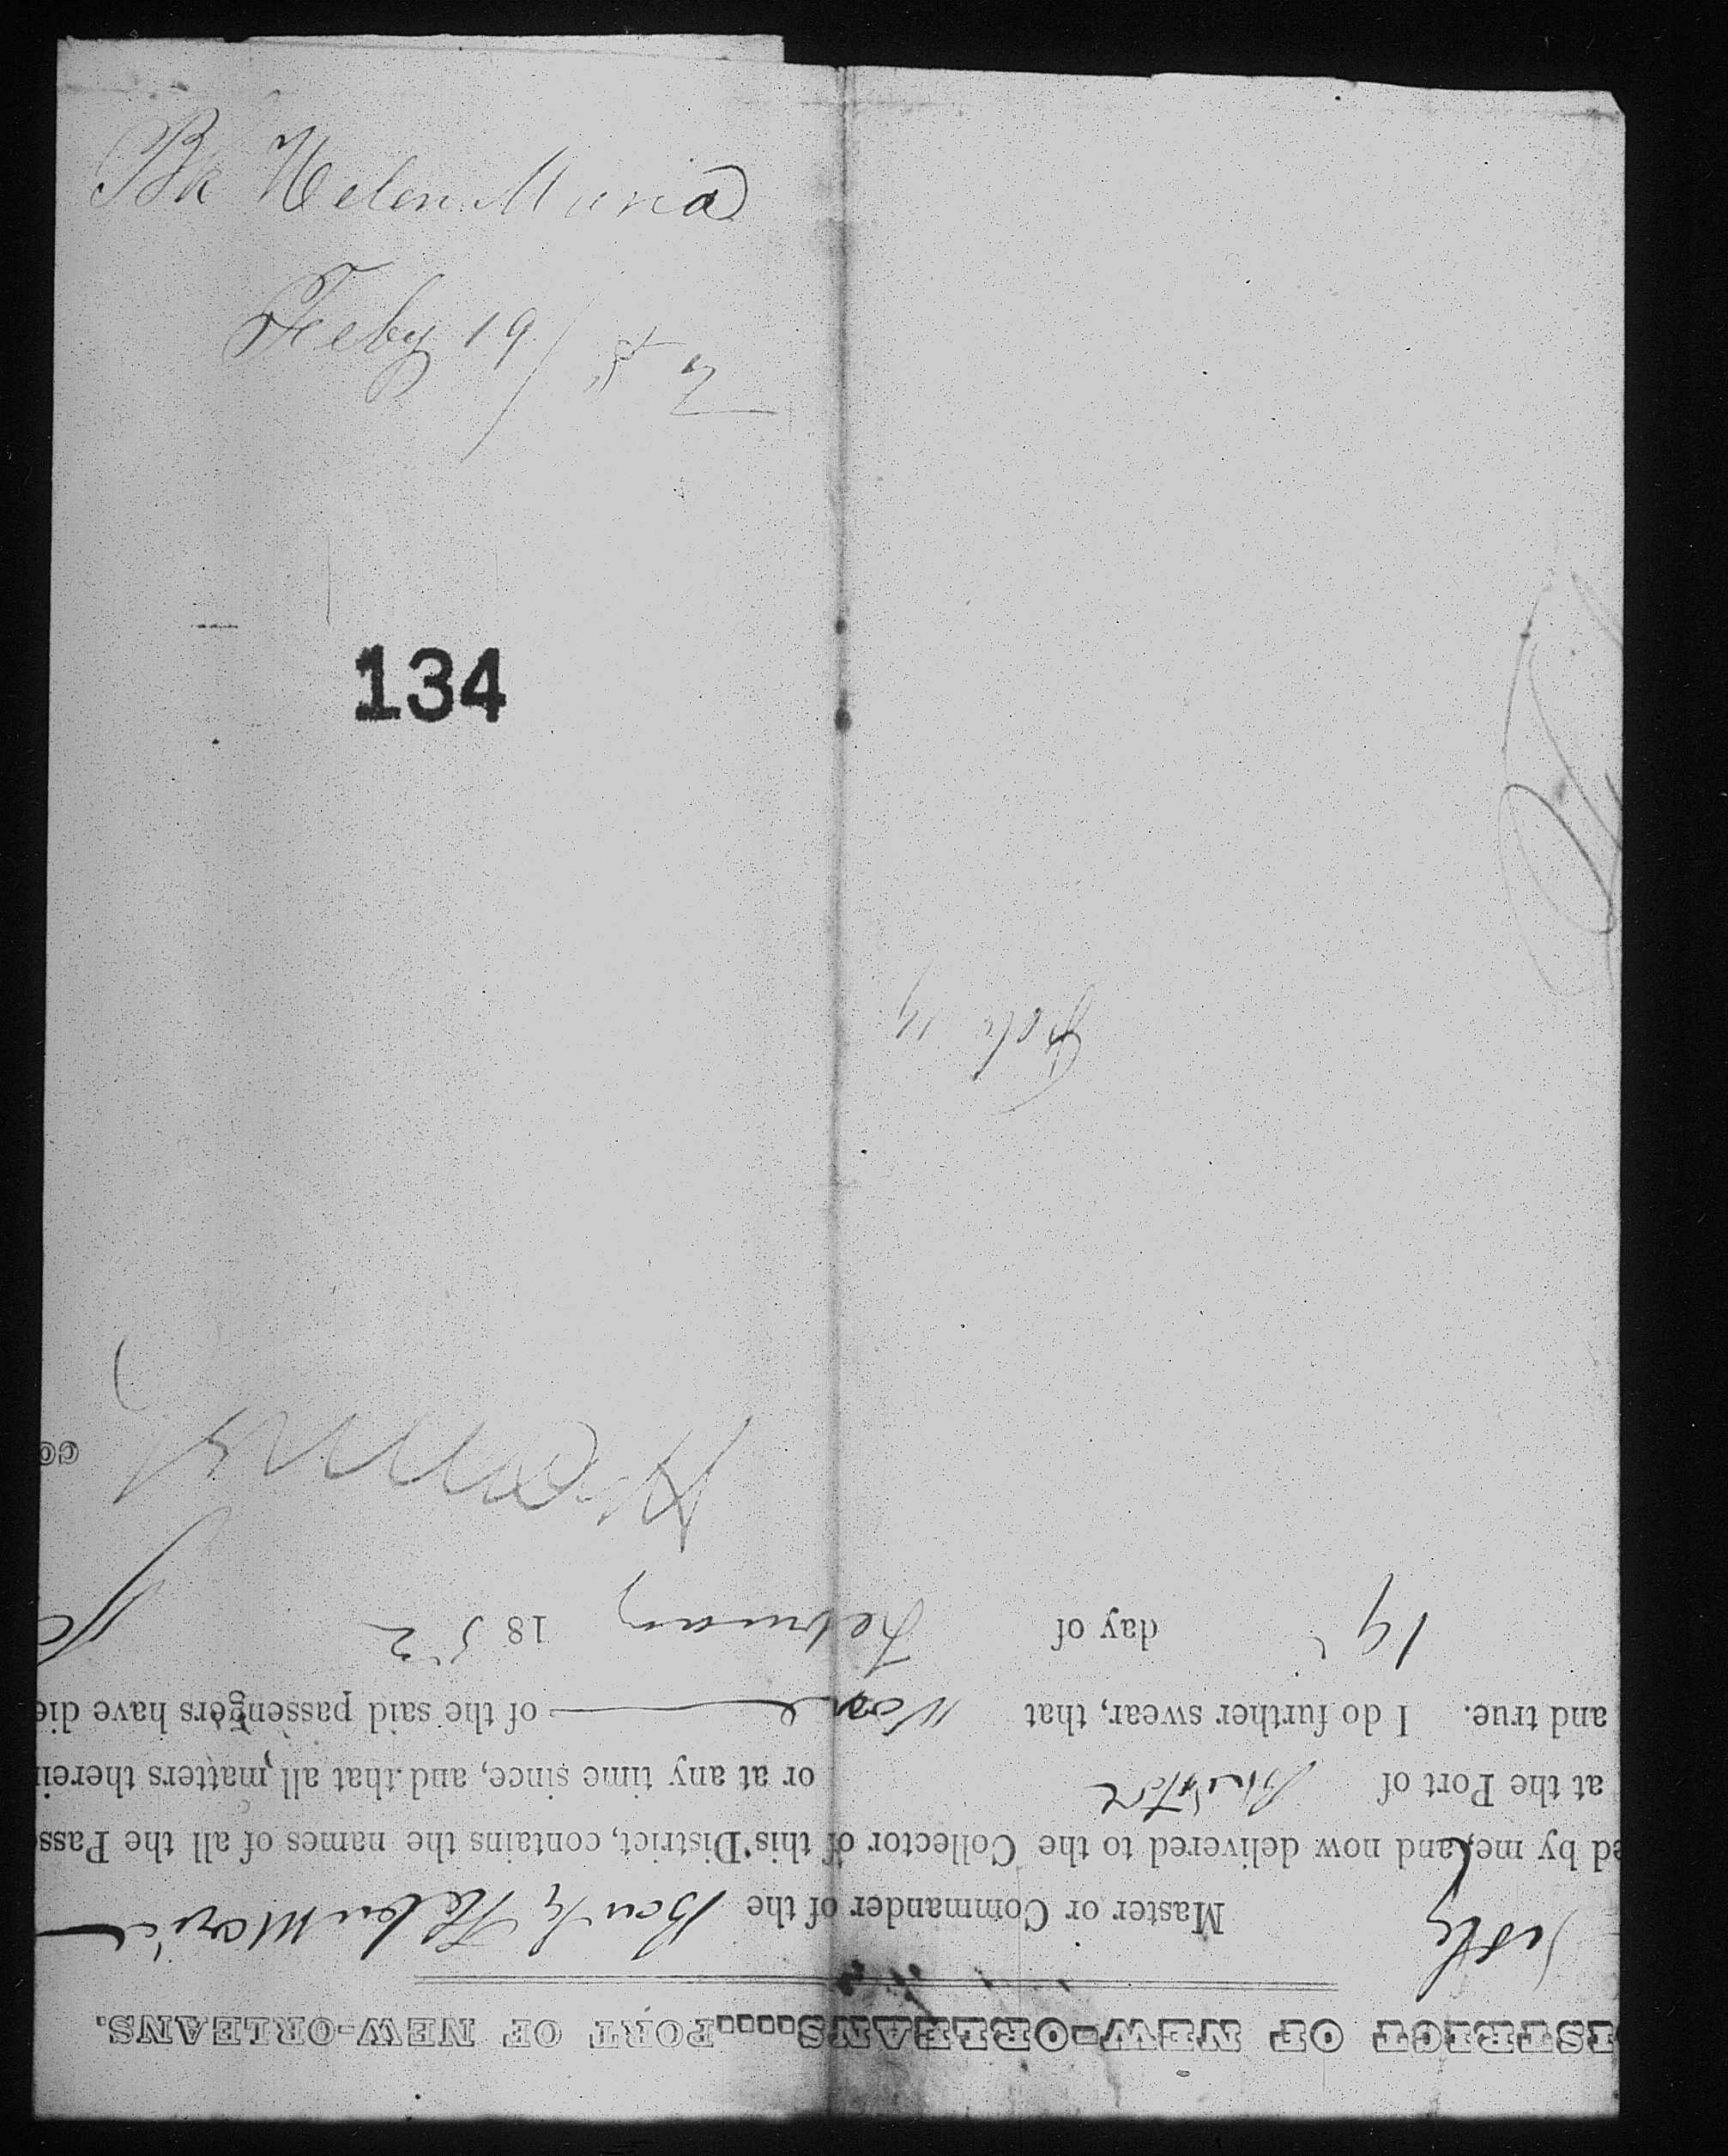 Bk Helen Maria
Feby 19/52
134
Feby 19
ISTRICT OF NEW-ORLEANS.....PORT OF NEW-ORLEANS.
Master or Commander of the Helen Maria
ed by me, and now delivered to the Collector of this District, contains the names of all the Pass
at the Port of or at any time since, and that all matters therein
and true. I do further swear, that None of the said passengers have die
19 day of February 1852
CO